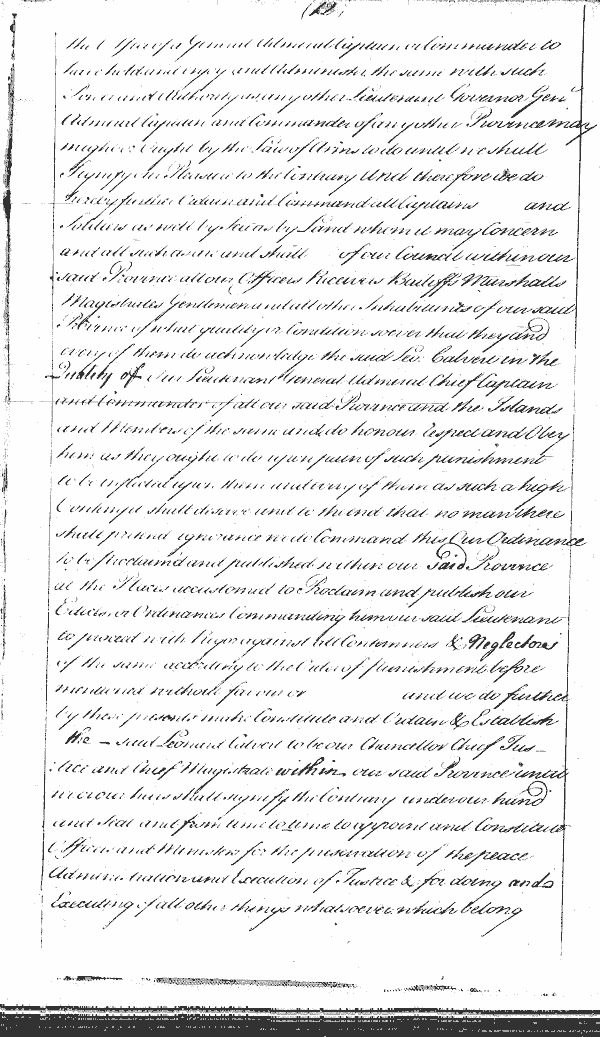 (12)
the Office of a General Admiral Captain or Commander to
have hold and enjoy and Administer the same with such
Power and Authority as any other Lieutenant Governor Gen.l
Admiral Captain and Commander of any other Province may
might or Ought by the Law of Arms to do until we shall
Signify Our Pleasure to the Contrary And therefore we do
hereby further Ordain and Command all Captains and
Soldiers as well by Sea as by Land whom it may Concern
and all such as are and shall of our Council within our
said Province all our Officers Receivers Bailiffs Marshalls
Magistrates Gentlemen and all other Inhabitants of our said
Province of what quality or Condition soever that they and
every of them do acknowledge the said Leo: Calvert in the
Quality of Our Lieutenant General Admiral Chief Captain
and Commander of all our said Province and the Islands
and Members of the same and do honour respect and Obey
him as they ought to do upon pain of such punishment
to be inflicted upon them and every of them as such a high
Contempt shall deserve and to the end that no man there
shall pretend ignorance we do Command this Our Ordinance
to be proclaimd and published within our Said Province
at the Places accustomed to Proclaim and publish our
Edicts or Ordinances Commanding him our said Lieutenant
to proceed with Vigor against all Contemners & Neglectors
of the same according to the Order of punishment before
mentioned without favour or and we do further
by these presents make Constitute and Ordain & Establish
the – said Leonard Calvert to be our Chancellor Chief Jus–
:tice and Chief Magistrate within our said Province until
we or our heirs shall signify the Contrary under our hand
and Seal and from time to time to appoint and Constitute
Officers and Ministers for the preservation of the peace
Administration and Execution of Justice & for doing and
Executing of all other things whatsoever which belong